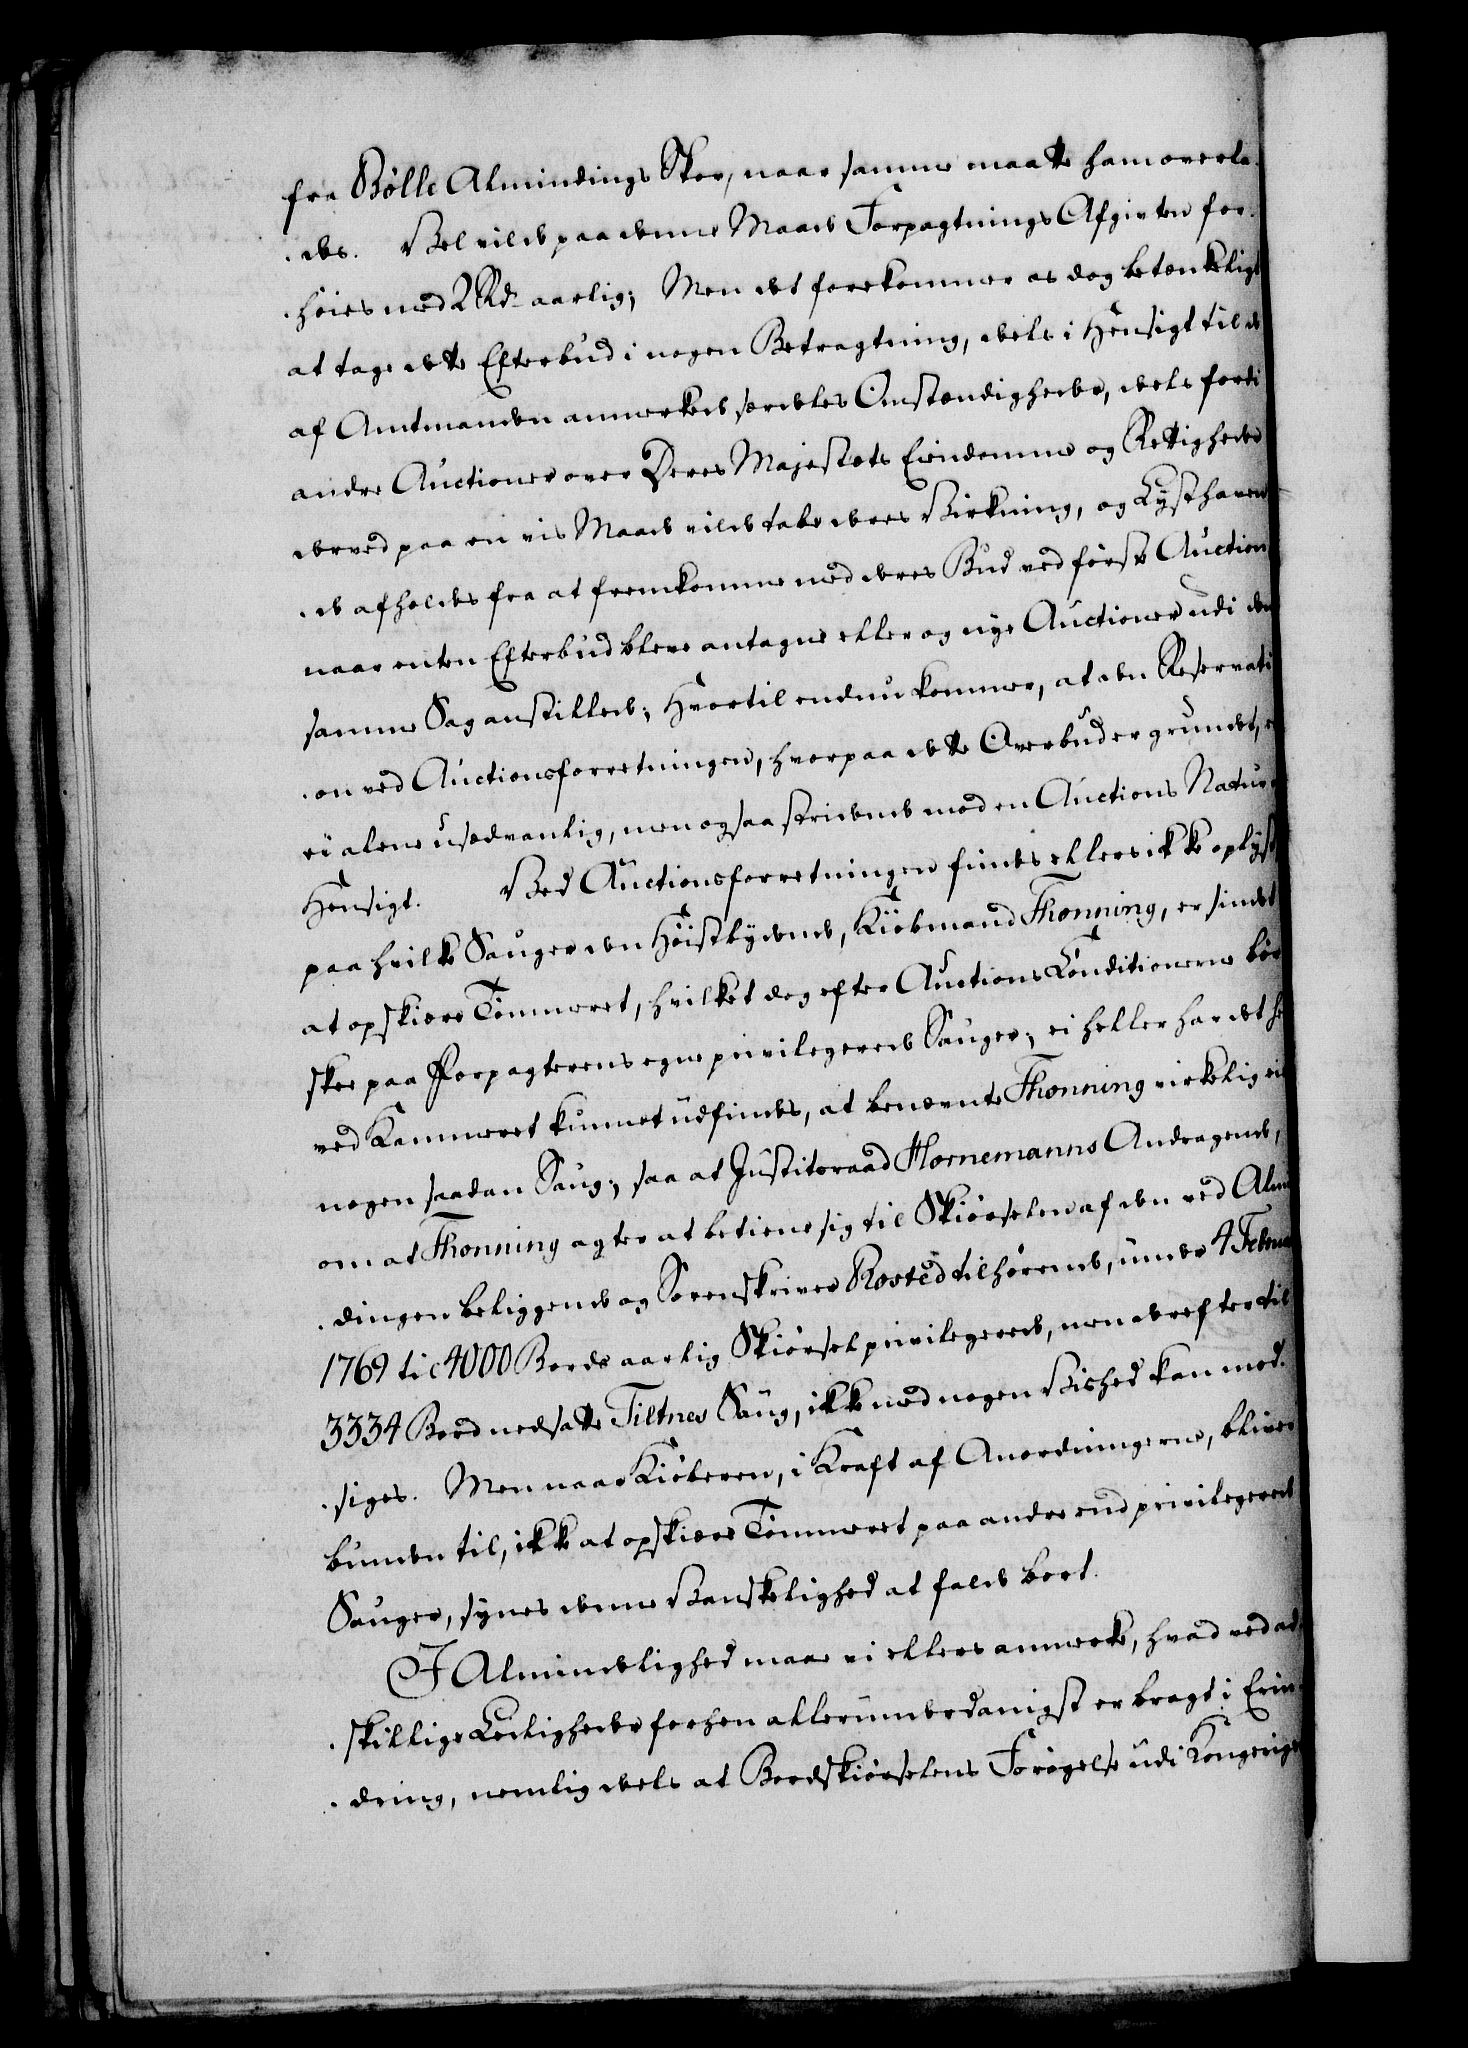 fra Bølle Almindings Skov, naar samme maatte ham overla-
des. Vel vilde paa denne Maade Forpagtnings Afgivten for-
høies med 2 Rd. aarlig; Men det forekommer os dog betænkeligt
at tage dette Efterbud i nogen Betragtning, deels i Hensigt til de
af Amtmanden anmerkede særdeles Omstændigheder, deels fordi
andre Auctioner over Deres Majestæts Eiendomme og Rettigheder
derved paa en vis Maade vilde tabe deres Virkning, og Lysthaven-
de afholdes fra at fremkomme med deres Bud ved første Auction
naar enten Efterbud bleve antagne eller og nye Auctioner udi den
samme Sag anstillede; Hvortil endnu kommer, at den Reservati-
on ved Auctionsforretningen, hvorpaa dette Overbud er grundet, er
ei alene usædvanlig, men ogsaa stridende mod en Auctions Natur og
Hensigt. Ved Auctionsforretningen findes ellers ikke oplyst,
paa hvilke Sauger den Høistbydende, Kiøbmand Thonning, er sindet
at opskiære Tømmeret, hvilket dog efter Auctions Conditionerne bør
skee paa Forpagterens egne privilegerede Sauger; ei heller har det her
ved Kammeret kunnet udfindes, at benævnte Thonning virkelig eier
nogen saadan Saug; saa at Justitsraad Hornemanns Andragende,
om at Thonning agter at betiene sig til Skiørselen af den ved Almin-
dingen beliggende og Sorenskriver Rosted tilhørende, under 4 Februar
1769 til 4000 Borde aarlig Skiørsel privilegerede, men derefter til
3334 Bord nedsatte Tiltnes Saug, ikke med nogen Vished kan mod-
siges. Men naar Kiøberen, i Kraft af Anordningerne, bliver
bunden til, ikke at opskiære Tømmeret paa andre end privilegerede
Sauger, synes denne Vanskelighed at falde bort.
I Almindelighed maae vi ellers anmerke, hvad ved ad-
skillige Leiligheder forhen allerunderdanigst er bragt i Erin-
dring, nemlig deels at Bordskiørselens Forøgelse udi Kongeriget